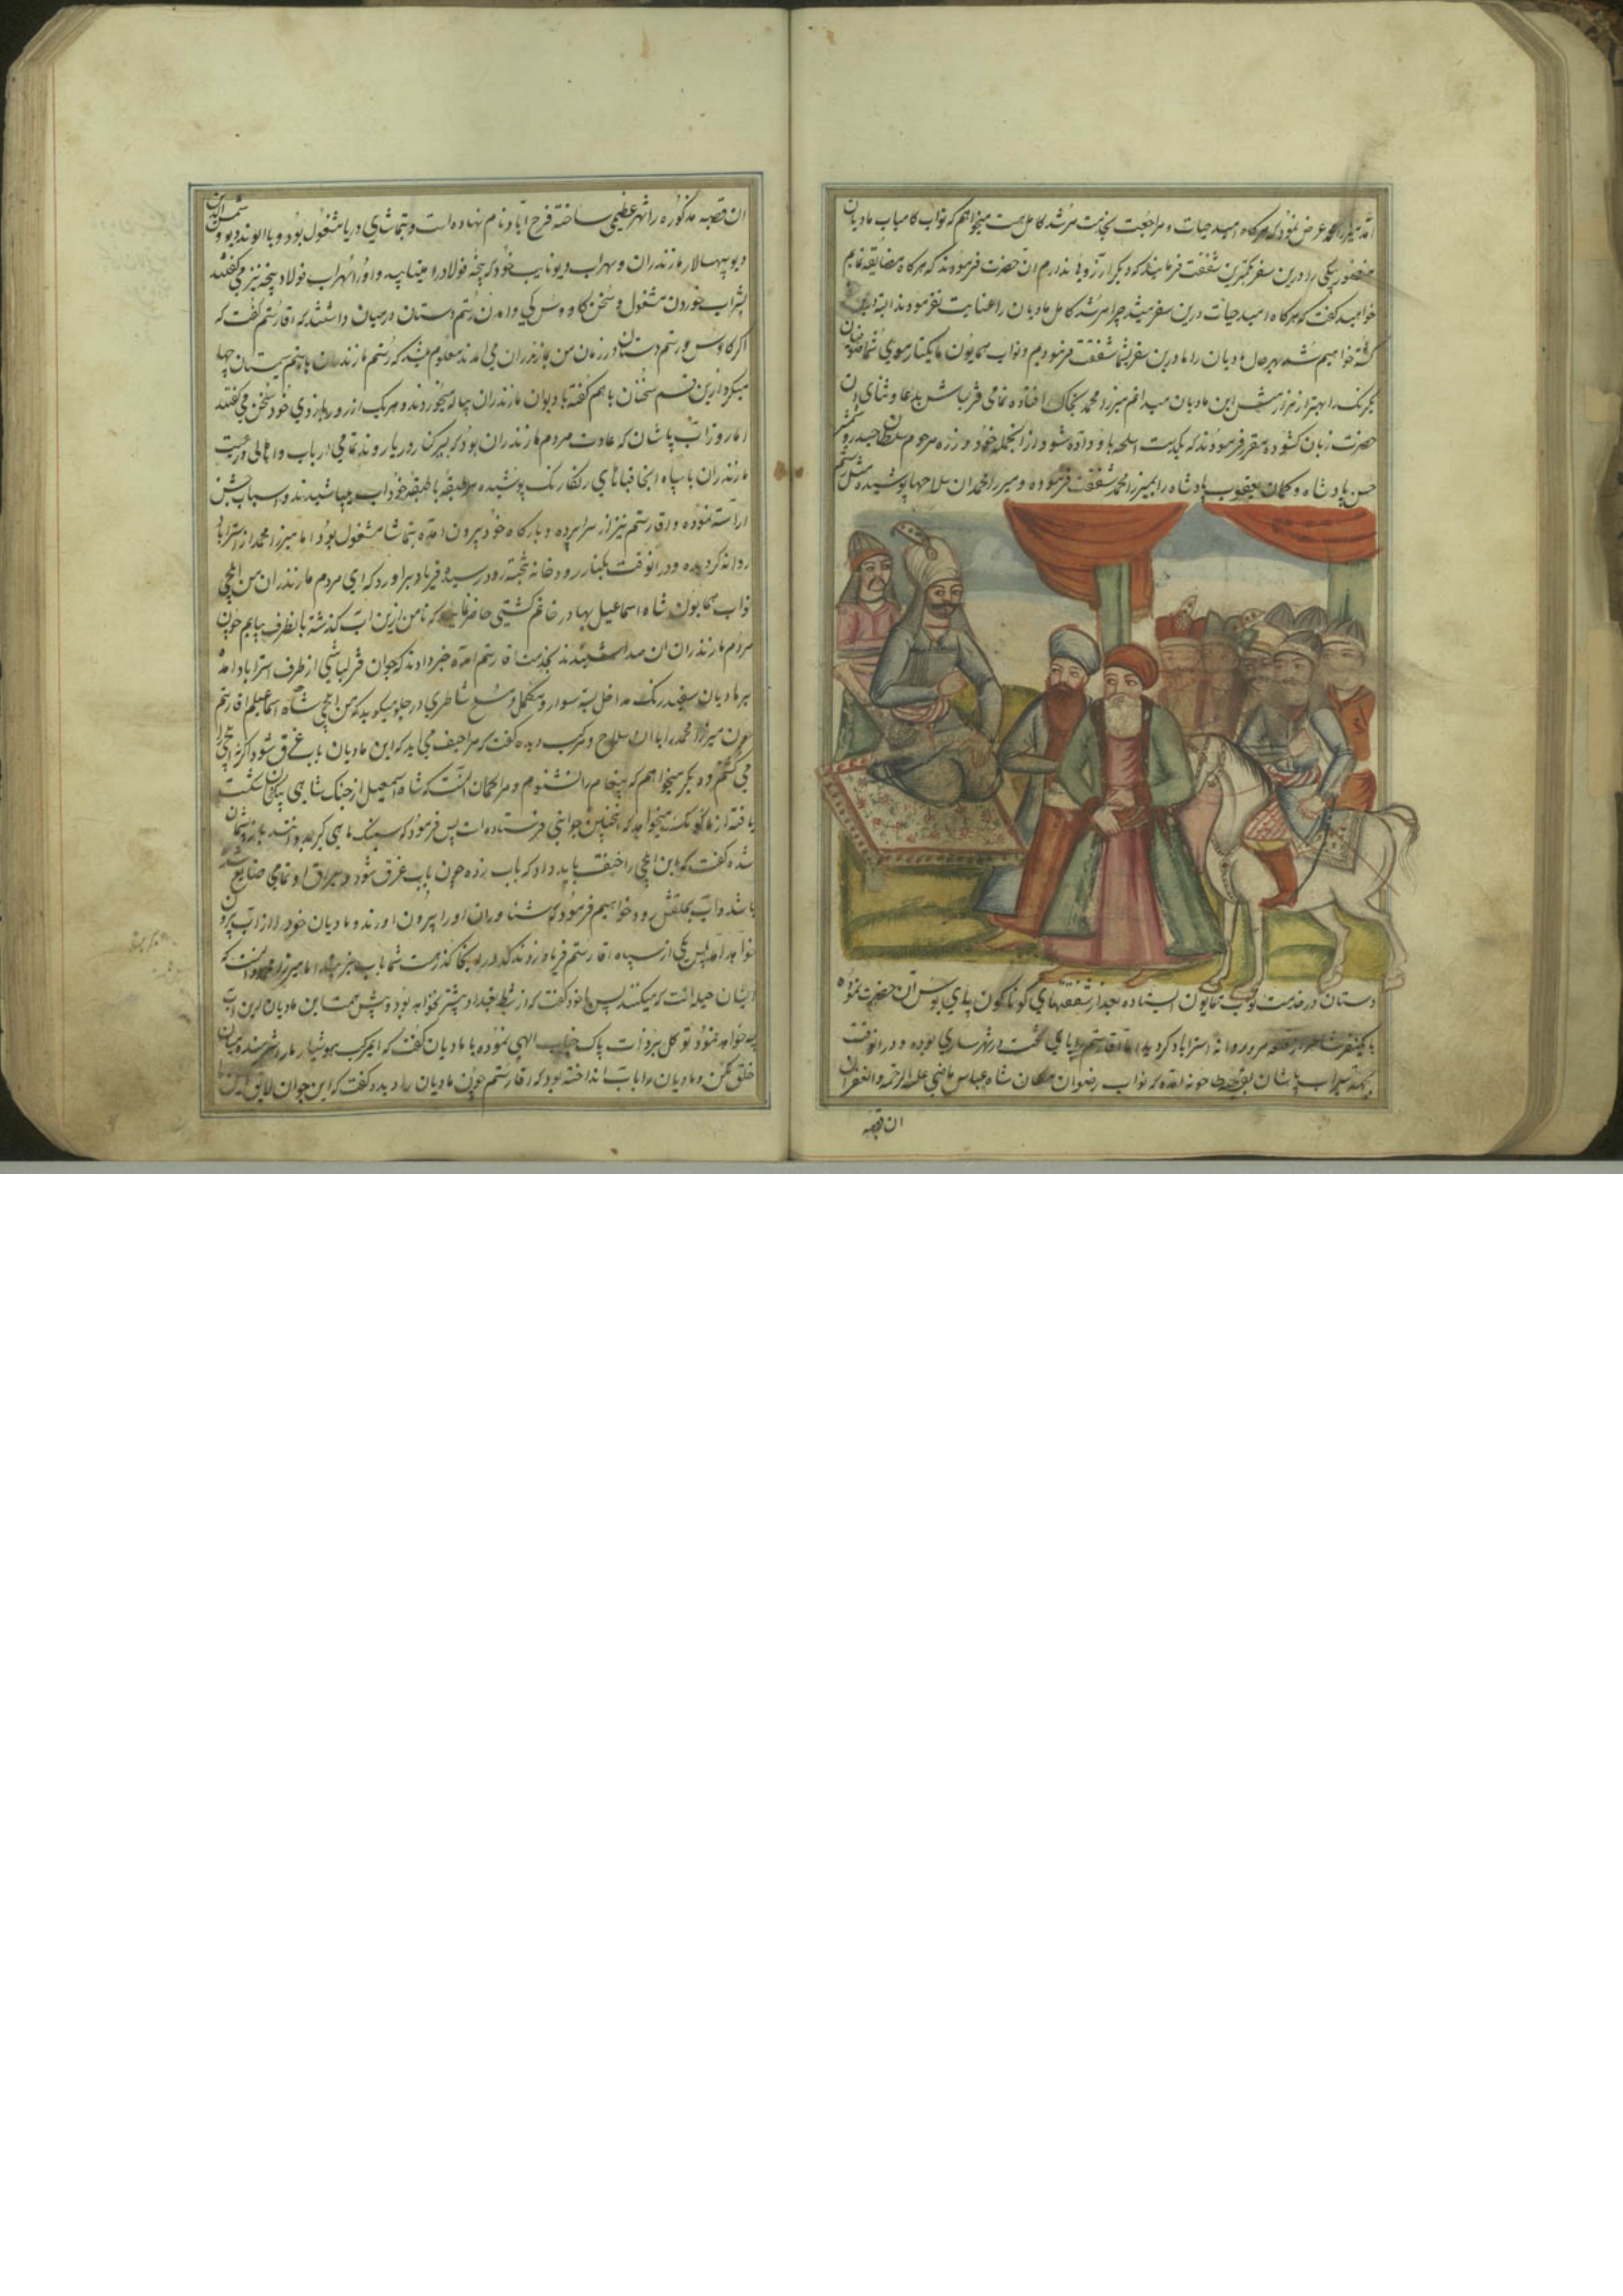 عرض نمود که هرگاه امید حیات و مراجعت بخدمت مرشد کامل هست میخواهم که نواب کامیاب مادیان
را درین سفر بکمترین شفقت فرمایند که دیگر آرزوها ندارم ان حضرت فرمودند که هرگاه مضایقه نمایم
خواهید گفت که هرگاه امید حیات درین سفر میشد چرا مرشد کامل مادیان را عنایت نفرمودند البته
خواهیم شد بهر حال مادیان را ما درین سفر بشما شفقت فرمودیم و نواب همایون ما یکتار موی شما
را بهتر از هزار این مادیان میدانم میرزا محمد بخاک افتاده تمامی قزلباش بدعا و ثنای ان
حضرت زبان کشوده مقرر فرمودند که یکدست اسلحه باو داده شود از انجمله خود و زره مرحوم سلطان حیدر و شمشیر
حسن پادشاه و کمان یعقوب پادشاه را بمیرزا محمد شفقت فرموده و میرزا محمد ان سلاحها پوشیده مثل رستم
دستان در خدمت نواب همایون ایستاده بعد از شفقتهای کوناکون پای بوس آن حضرت نموده
با یکنفر شاطر روانه استراباد کردید اما اقا رستم پای تخت در شهر ساری بوده و درانوقت
پاشان امده که نواب رضوان مکان شاه عباس ماضی علیه الرحمه والغفران
ان قصبه
ان قصبه مذکوره را شهر عظیمی ساخته فرح اباد نام نهاده است و بتماشای دریا مشغول بود و با الوند دیو و شمس الدین
دیو سپهسالار مازندران و سهراب دیو نایب خود که پنجه فولاد و اورا سهراب فولاد پنجه نیز می گفتند
بشراب خوردن مشغول و سخن کاووس کی و امدن رستم دستان در میان داشتند که اقا رستم گفت که
اگر کاوس و رستم دستان در زمان من بمازندران می امدند معلوم میشد که رستم مازندران با رستم سیستان چها
میکرد ازین قسم سخنان باهم گفته با دیوان مازندران پیاله میخوردند و هریک از زور بازوی خود سخن می گفتند
اما روز آب پاشان که عادت مردم مازندران بود که بر کنار دریا روند تمامی ارباب و اهالی و رعیت
مازندران با سپاه انجا قباهای رنگارنگ پوشیده هر طبقه با طبقه خود اب میپاشیدند و اسباب جشن
اراسته نموده و اقا رستم نیز از سراپرده و بارگاه خود بیرون امده بتماشا مشغول بود اما میرزا محمد از استراباد
روانه کردیده و درانوقت بکنار رودخانه رسید و فریاد براورد که ای مردم مازندران من ایلچی
نواب همایون شاه اسماعیل بهادر خانم کشتی حاضر که تا من ازین اب گذشته بانطرف بیایم چون
مردم مازندران ان صدا شنیدند بخدمت اقا رستم امده خبر دادند که جوان قزلباشی از طرف استراباد امده
بر مادیان سفید رنگ سوار و مکمل و مسلح شاطری در جلو میگوید که من ایلچی شاه اسماعیلم اقا رستم
چون میرزا محمد را با ان سلاح و مرکب دیده گفت که مرا حیف می اید که این مادیان باب غرق شود اگرنه ایلچی را
می کشتم و دیگر میخواهم که پیغام را نشنوم و مرا گمان انست که شاه اسمعیل از جنگ شاهی بیک خان شکست
یافته از ما کومک میخواهد که اینچنین جوانی فرستاده است پس فرمود که
شده گفت که این ایلچی را باید داد که باب زده چون باب غرق شود و یراق او تمامی ضایع شده
باشد و اب بحلقش رود خواهیم فرمود که شناوران اورا بیرون اورند و مادیان خود از اب بیرون
خواهد امد پس یکی از سپاه اقا رستم فریاد زد که در اینجا گذر هست شما باب بزنید اما میرزا محمد دانست که
ایشان حیله است که میکنند پس با خود گفت که از شط بغداد بیشتر نخواهد بود و پیش همت این مادیان این اب
چه خواهد نمود توکل بر ذات پاک جناب الهی نموده با مادیان گفت که ای مرکب هوشیار مارا شرمنده میان
خلق مکن و مادیان را باب انداخته بود که اقا رستم چون مادیان را دیده گفت که این جوان لایق این